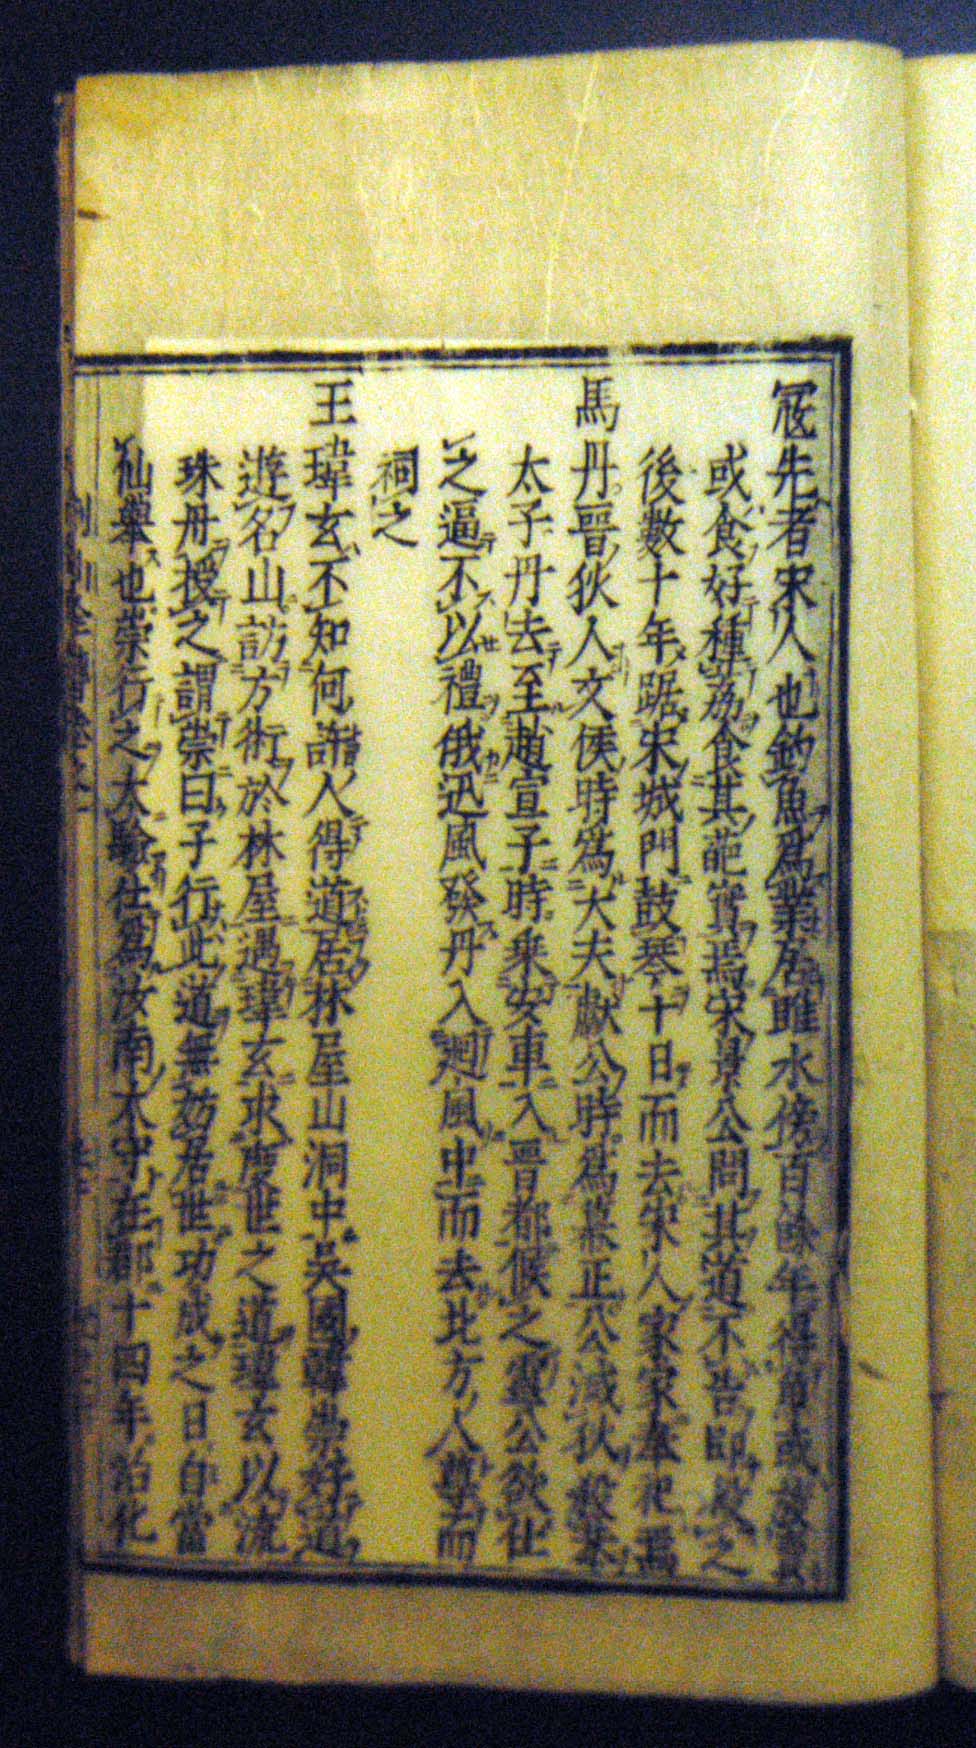 冦先者宋人也釣魚爲業居睢水傍百餘年得魚或放或賣
或食好種荔食其葩實焉宋景公問其道不告即殺之
後數十年踞宋城門鼓琴十日而去宋人家家奉祀焉
馬丹晉狄人文侯時爲大夫獻公時爲幕正公滅狄殺恭
太子丹去至趙宣子時乘安車入晉都候之靈公欲仕
之逼不以禮俄迅風發丹入迴風中而去北方人尊而
祠之
王瑋玄不知何許人得道居林屋山洞中吳國韓崇好道
遊名山訪方術於林屋遇瑋玄求度世之道瑋玄以流
珠丹授之謂崇曰子行此道無妨居世功成之日自當
仙舉也崇行之大驗仕爲汝南太守在郡十四年治化